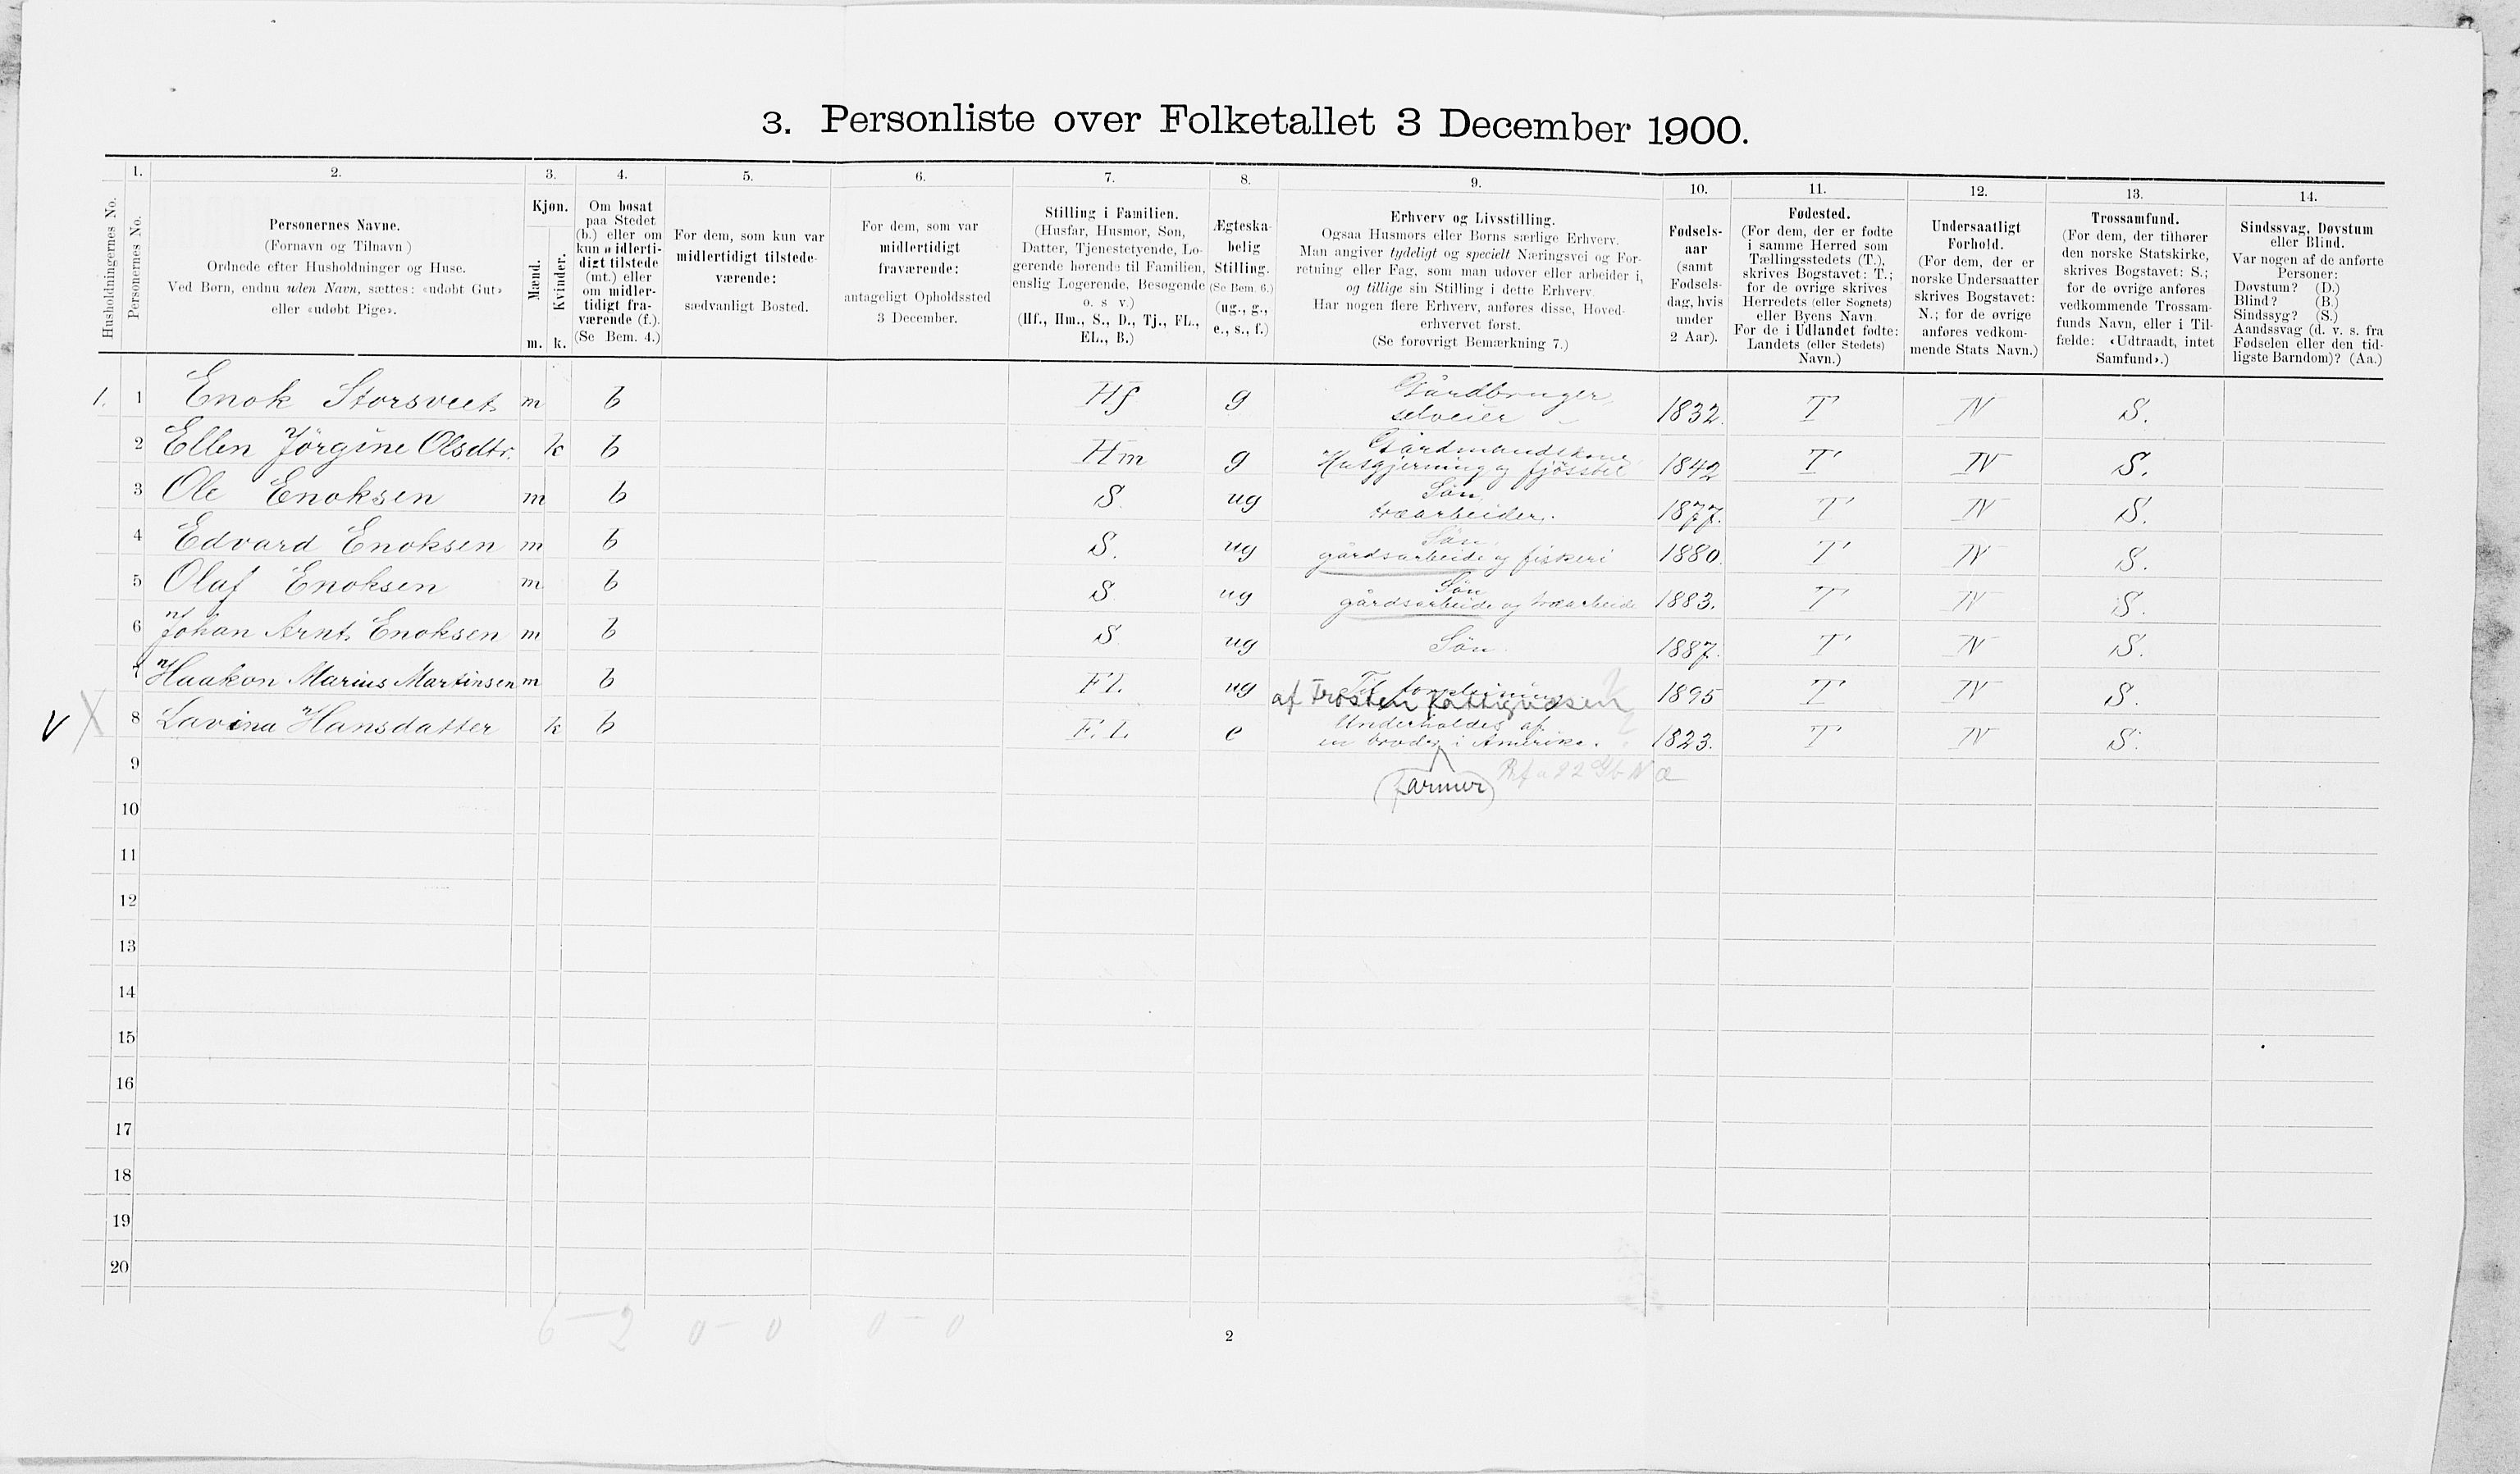 3. Personliste over Folketallet 3 December 1900.
Husholdningernes No.
1.
Personernes No.
2.
Personernes Navne.
(Fornavn og Tilnavn)
Ordnede efter Husholdninger og Huse.
Ved Børn, endnu uden Navn, sættes: «udøbt Gut»
eller «udøbt Pige».
3.
Kjøn.
Mænd.
Kvinder.
m. k.
4.
Om bosat
paa Stedet
(b.) eller om
kun midlerti-
digt tilstede
(mt.) eller
om midler-
tidigt fra-
værende (f.).
(Se Bem. 4.)
5.
For dem, som kun var
midlertidigt tilstede-
værende:
sædvanligt Bosted.
6.
For dem, som var
midlertidigt
fraværende:
antageligt Opholdssted
3 December.
7.
Stilling i Familien.
(Husfar, Husmor, Søn,
Datter, Tjenestetyende, Lo-
gerende hørende til Familien,
enslig Logerende, Besøgende
o. s v.)
(Hf., Hm., S., D., Tj., FL.,
EL., B.)
8.
Ægteska-
belig
Stilling.
(Se Bem. 6.)
(ug., g.,
e., s., f.)
9.
Erhverv og Livsstilling.
Ogsaa Husmors eller Børns særlige Erhverv.
Man angiver tydeligt og specielt Næringsvei og For-
retning eller Fag, som man udøver eller arbeider i,
og tillige sin Stilling i dette Erhverv.
Har nogen flere Erhverv, anføres disse, Hoved-
erhvervet først.
(Se forøvrigt Bemærkning 7.)
10.
Fødsels-
aar
(samt
Fødsels-
dag, hvis
under
2 Aar).
11.
Fødested.
(For dem, der er fødte
i samme Herred som
Tællingsstedets (T.),
skrives Bogstavet: T.;
for de øvrige skrives
Herredets (eller Sognets)
eller Byens Navn.
For de i Udlandet fødte:
Landets (eller Stedets)
Navn.)
12.
Undersaatligt
Forhold.
(For dem, der er
norske Undersaatter
skrives Bogstavet:
N.; for de øvrige
anføres vedkom-
mende Stats Navn.)
13.
Trossamfund.
(For dem, der tilhører
den norske Statskirke,
skrives Bogstavet: S.;
for de øvrige anføres
vedkommende Trossam-
funds Navn, eller i Til-
fælde: «Udtraadt, intet
Samfund».)
14.
Sindssvag, Døvstum
eller Blind.
Var nogen af de anførte
Personer:
Døvstum? (D.)
Blind? (B.)
Sindssyg? (S.)
Aandssvag (d. v. s. fra
Fødselen eller den tid-
ligste Barndom)? (Aa.)
1. 1 Enok Storsveet m b Hf g Gårdbruger, selveier 1832. T N S.
2 Ellen Jörgine Olsdtr. k b Hm g Gårdmandskone Husgjerning og fjösstel 1842 T N S.
3 Ole Enoksen m b S. ug Sön, træarbeider. 1877. T N S.
4 Edvard Enoksen m b S. ug Sön, gårdsarbeide og fiskeri 1880. T N S.
5 Olaf Enoksen m b S ug Sön gårdsarbeide og træarbeide 1883. T N S.
6 Johan Arnt Enoksen m b S ug Sön 1887. T N S.
7 Haakon Marius Martinsen m b FL ug af
1895 T N S.
V X 8 Lavina Hansdatter k b F.L. e Underholdes af en broder i Amerika. 1823. T N S.
(farmer)
9
10
11
12
13
14
15
16
17
18
19
20
6 – 2 0 – 0 0 – 0
2